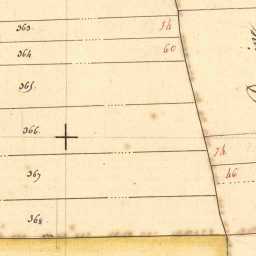 363.
364
365.
366.
367
368.
60
46